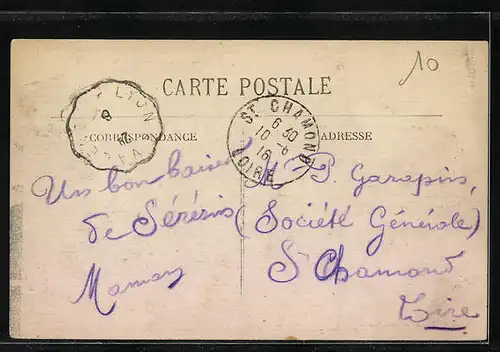 10
CARTE POSTALE
CORRESPONDANCE
ADRESSE
LYON
ST CHAMOND
6 30
10 -6
16
LOIRE
Un bon baiser
de Sérézin
Maman
M. P. Garapin
(Société Générale)
St Chamond
Loire